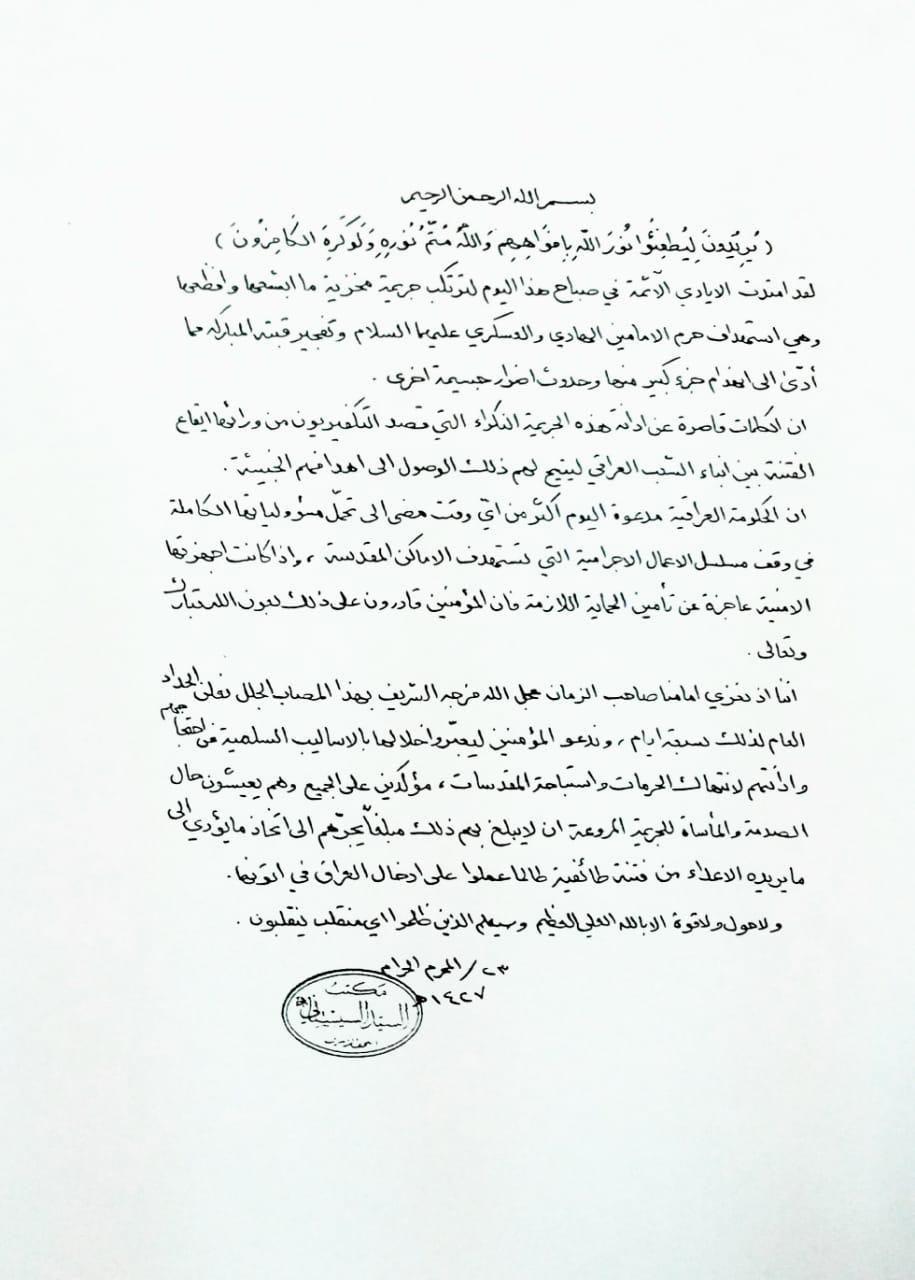 بسم الله الرحمن الرحيم
( يُرِيدُونَ لِيُطفِئُوا نُورَ اللّهِ بِافوَاهِهِم وَاللّهُ مُتمُّ نُورِهِ وَلَوكَرِهَ الكَافِرُونَ )
لقد امتدت الايادي الآثمة في صباح هذا اليوم لترتكب جريمة مخزية ما ابشعها وافظعها
وهي استهداف حرم الامامين الهادي والعسكري عليهما السلام وتفجير قبته المباركه مما
أدّىٰ الى انهدام جزء كبير منها وحدوث اضرار جسيمة اخرى .
ان الكلمات قاصرة عن ادانة هذه الجريمة النكراء التي قصد التكفيريون من ورائها ايقاع
الفتنة بين ابناء الشعب العراقي ليتيح لهم ذلك الوصول الى اهدافهم الخبيثة .
ان الحكومة العراقية مدعوة اليوم اكثر من ايّ وقت مضى الى تحمّل مسؤولياتها الكاملة
في وقف مسلسل الاعمال الاجرامية التي تستهدف الاماكن المقدسة ، واذا كانت اجهزتها
الامنية عاجزة عن تأمين الحماية اللازمة فان المؤمنين قادرون على ذلك بعون الله تبارك
وتعالى .
اننا اذ نعزي امامنا صاحب الزمان عجل الله فرجه الشريف بهذا المصاب الجلل نعلن الحداد
العام لذلك سبعة ايام ، وندعو المؤمنين ليعبّروا خلالها بالاساليب السلمية عن احتجاجهم
وادانتهم لانتهاك الحرمات واستباحة المقدسات ، مؤكدين على الجميع وهم يعيشون حال
الصدمة والمأساة للجريمة المروعة ان لايبلغ بهم ذلك مبلغاً يجرّهم الى اتخاذ مايؤدي الى
مايريده الاعداء من فتنة طائفية طالما عملوا على ادخال العراق في اتونها .
ولاحول ولاقوة الا بالله العلي العظيم وسيعلم الذين ظلموا اي منقلب ينقلبون .
٢٣ / المحرم الحرام
١٤٢٧ هـ
مكتب
السيد السيستاني